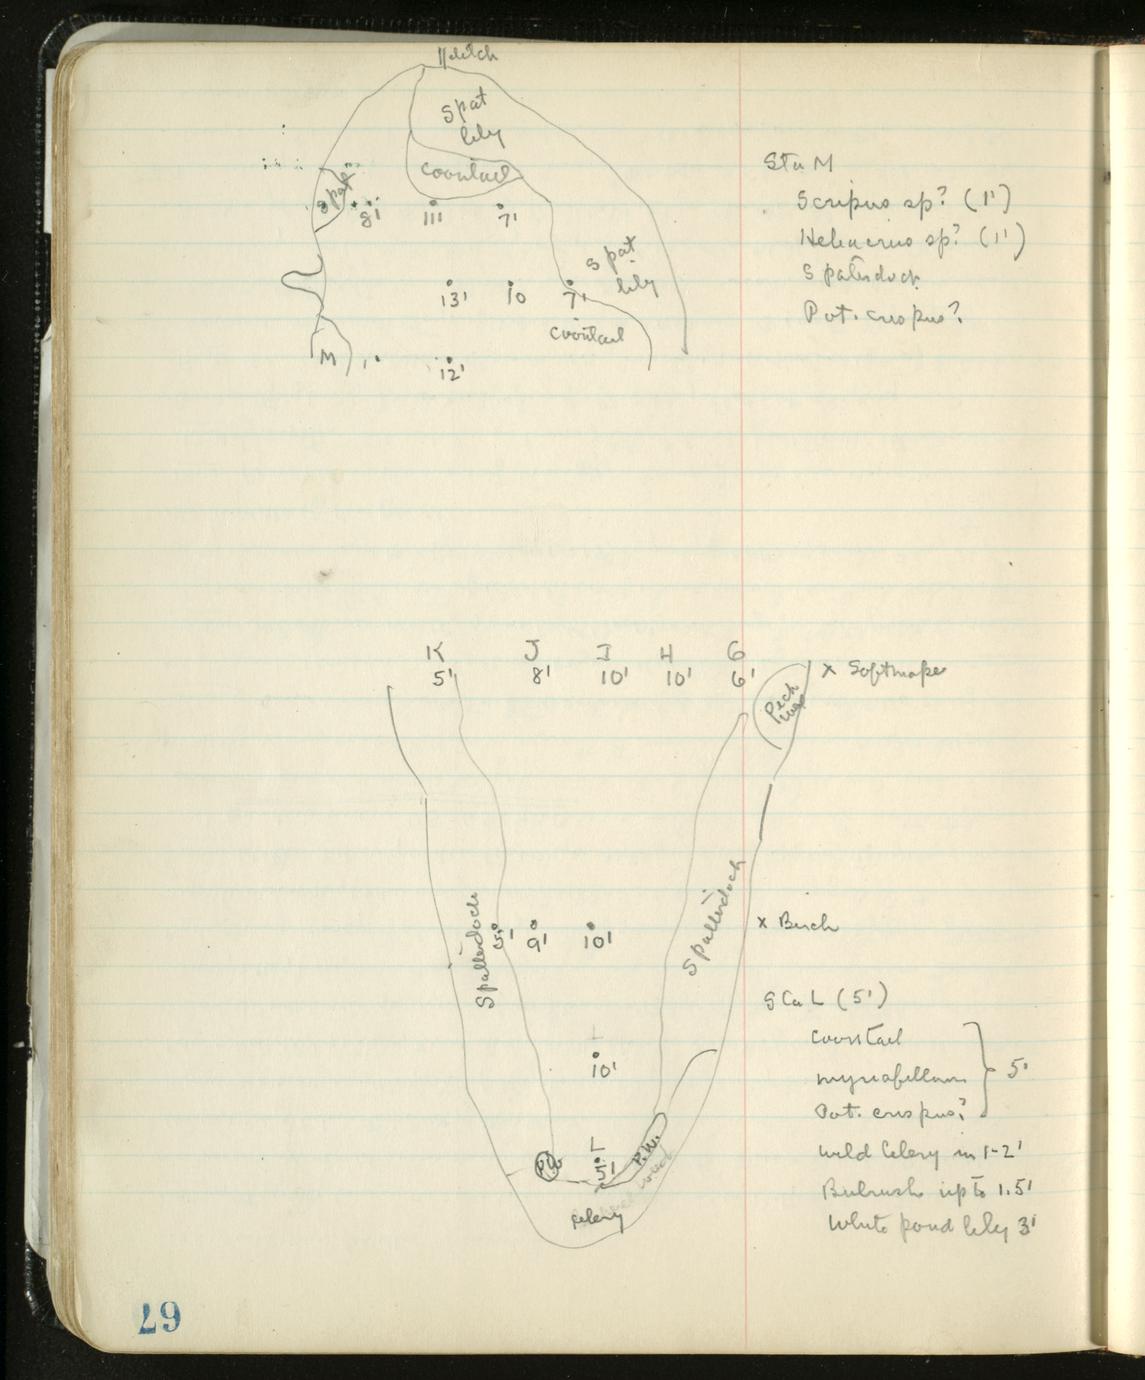 ditch
Spat
lily
Coontail
Spat
8'
11'
7'
Spat
lily
13'
10
7'
Coontail
M
12'
Sta M
Scripus sp? (1')
sp? (1')
Spatterdock
Pot. crispus?
K J I H G
5' 8' 10' 10' 6'
x Softmaple
Pick
weed
Spatterdock
5' 9' 10'
Spatterdock
x Birch
Sta L (5')
Coontail
myriofillum
Pot. crispus?
5'
10'
Wild Celery in 1-2'
L
5'
PW
P.W.
Bulrush up to 1.5'
White pond lily 3'
Celery
67